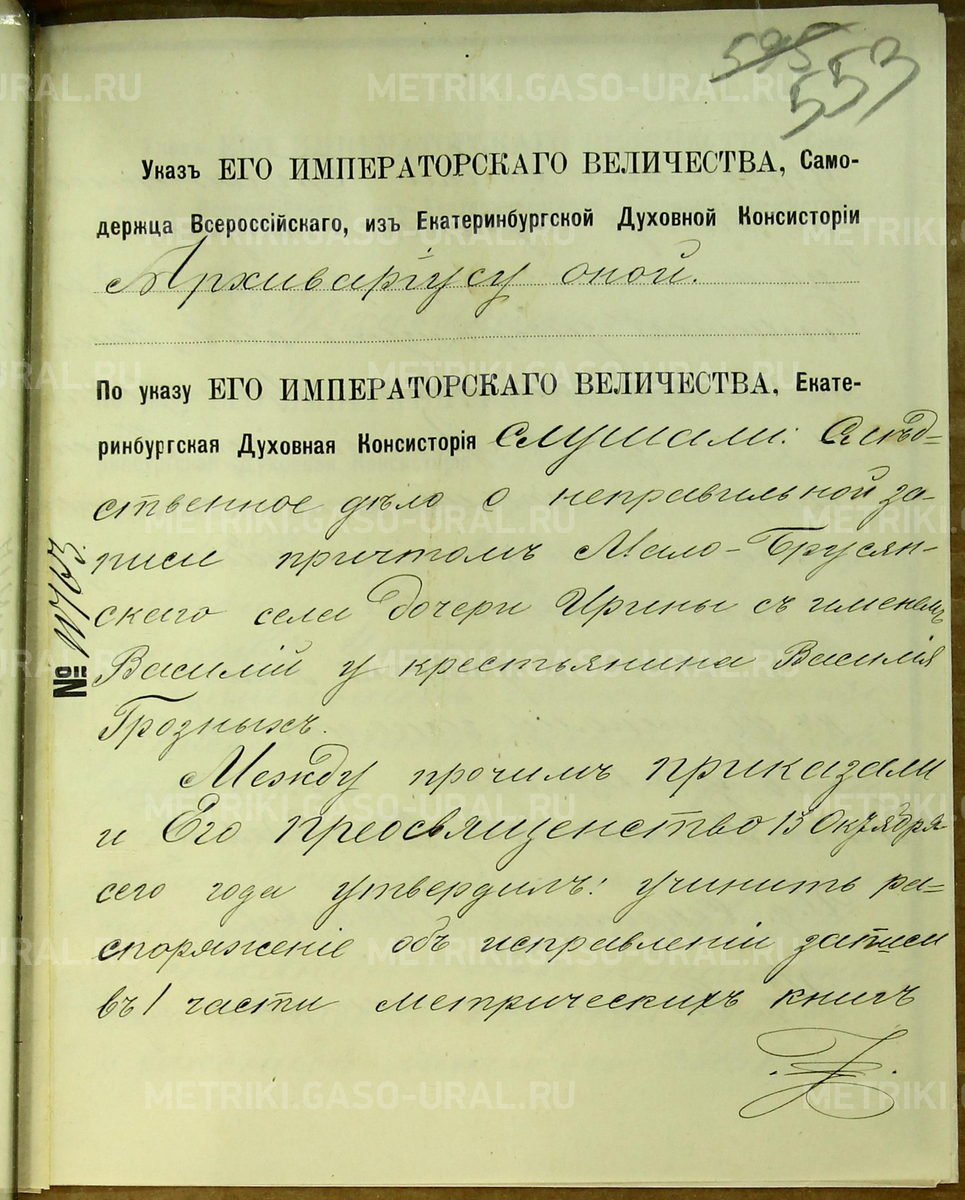 595
553
Указъ ЕГО ИМПЕРАТОРСКАГО ВЕЛИЧЕСТВА, Само-
держца Всероссійскаго, изъ Екатеринбургской Духовной Консисторіи
Архиваріусу оной.
По указу ЕГО ИМПЕРАТОРСКАГО ВЕЛИЧЕСТВА, Екате-
ринбургская Духовная Консисторія слушали: Слѣд-
ственное дѣло о неправильной за-
писи причтомъ Мало-Брусян-
скаго села дочери Ирины съ именемъ
Василій у крестьянина Василія
Грозныхъ.
Между прочимъ приказали
и Его Преосвященство 13 Октября
сего года утвердилъ: учинить ра-
споряженіе объ исправленіи записи
въ 1 части метрическихъ книгъ
№
METRIKI.GASO-URAL.RU